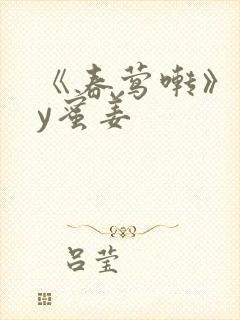 《春莺啭》
y蜜姜
吕莹